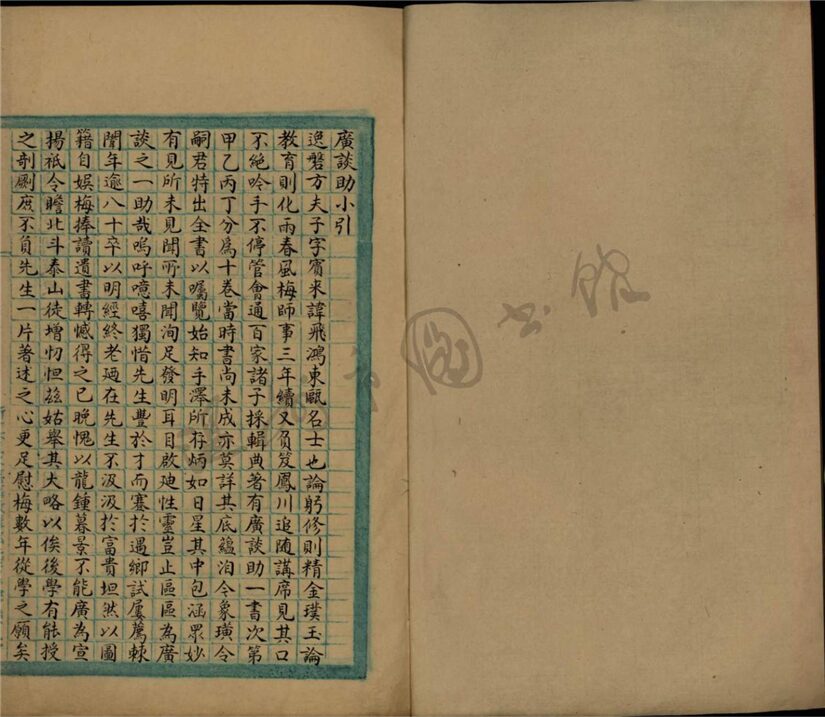 廣談助小引
逸磐方夫子字賓來諱飛鴻東甌名士也論躬修則精金璞玉論
教育則化雨春風梅師事三年續又負笈鳳川追随講席見其口
不絶吟手不停管會通百家諸子採輯典著有廣談助一書次第
甲乙丙丁分爲十卷當時書尚未成亦莫詳其底蘊洎令象璜令
嗣君特出全書以囑覽始知手澤所存炳如日星其中包涵眾妙
有見所未見聞所未聞洵足發明耳目啟廸性靈豈止區區為廣
談之一助哉嗚呼噫嘻獨惜先生豐於才而蹇於遇鄉試屢薦棘
闈年逾八十卒以明經終老廼在先生不汲汲於富貴坦然以圖
籍自娱梅捧讀遺書轉憾得之已晚愧以龍鍾暮景不能廣為宣
揚祇令瞻北斗泰山徒增忉怛兹姑舉其大略以俟後學有能授
之剞劂庶不負先生一片著述之心更足慰梅數年從學之願矣
書館